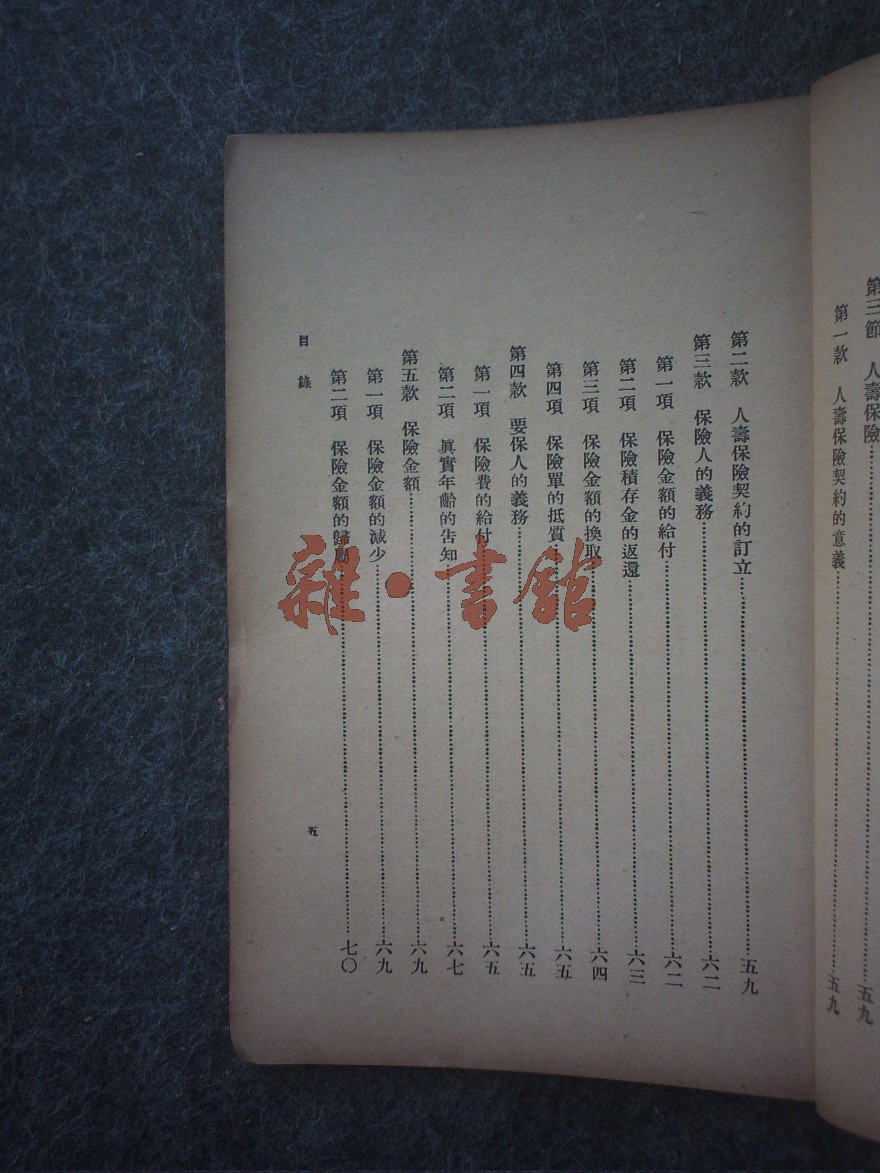 第三節　人壽保險……五九
第一款　人壽保險契約的意義……五九
第二款　人壽保險契約的訂立……五九
第三款　保險人的義務……六二
第一項　保險金額的給付……六二
第二項　保險積存金的返還……六三
第三項　保險金額的換取……六四
第四項　保險單的抵質……六五
第四款　要保人的義務……六五
第一項　保險費的給付……六五
第二項　眞實年齡的告知……六七
第五款　保險金額……六九
第一項　保險金額的減少……六九
第二項　保險金額的歸屬……七〇
目錄
五
雜·書館